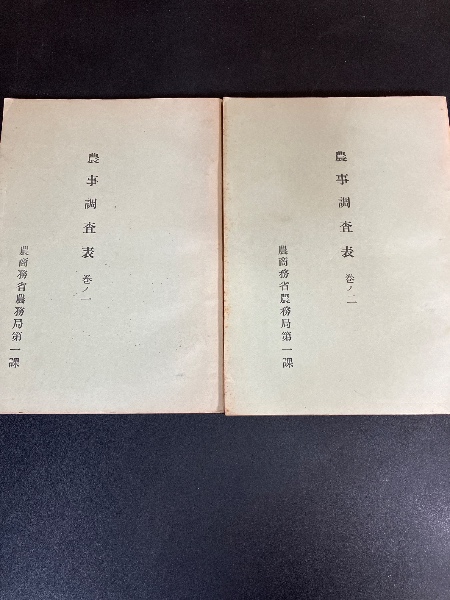 農事調査表 巻ノ一
農商務省農務局第一課
農事調査表 巻ノ二
農商務省農務局第一課